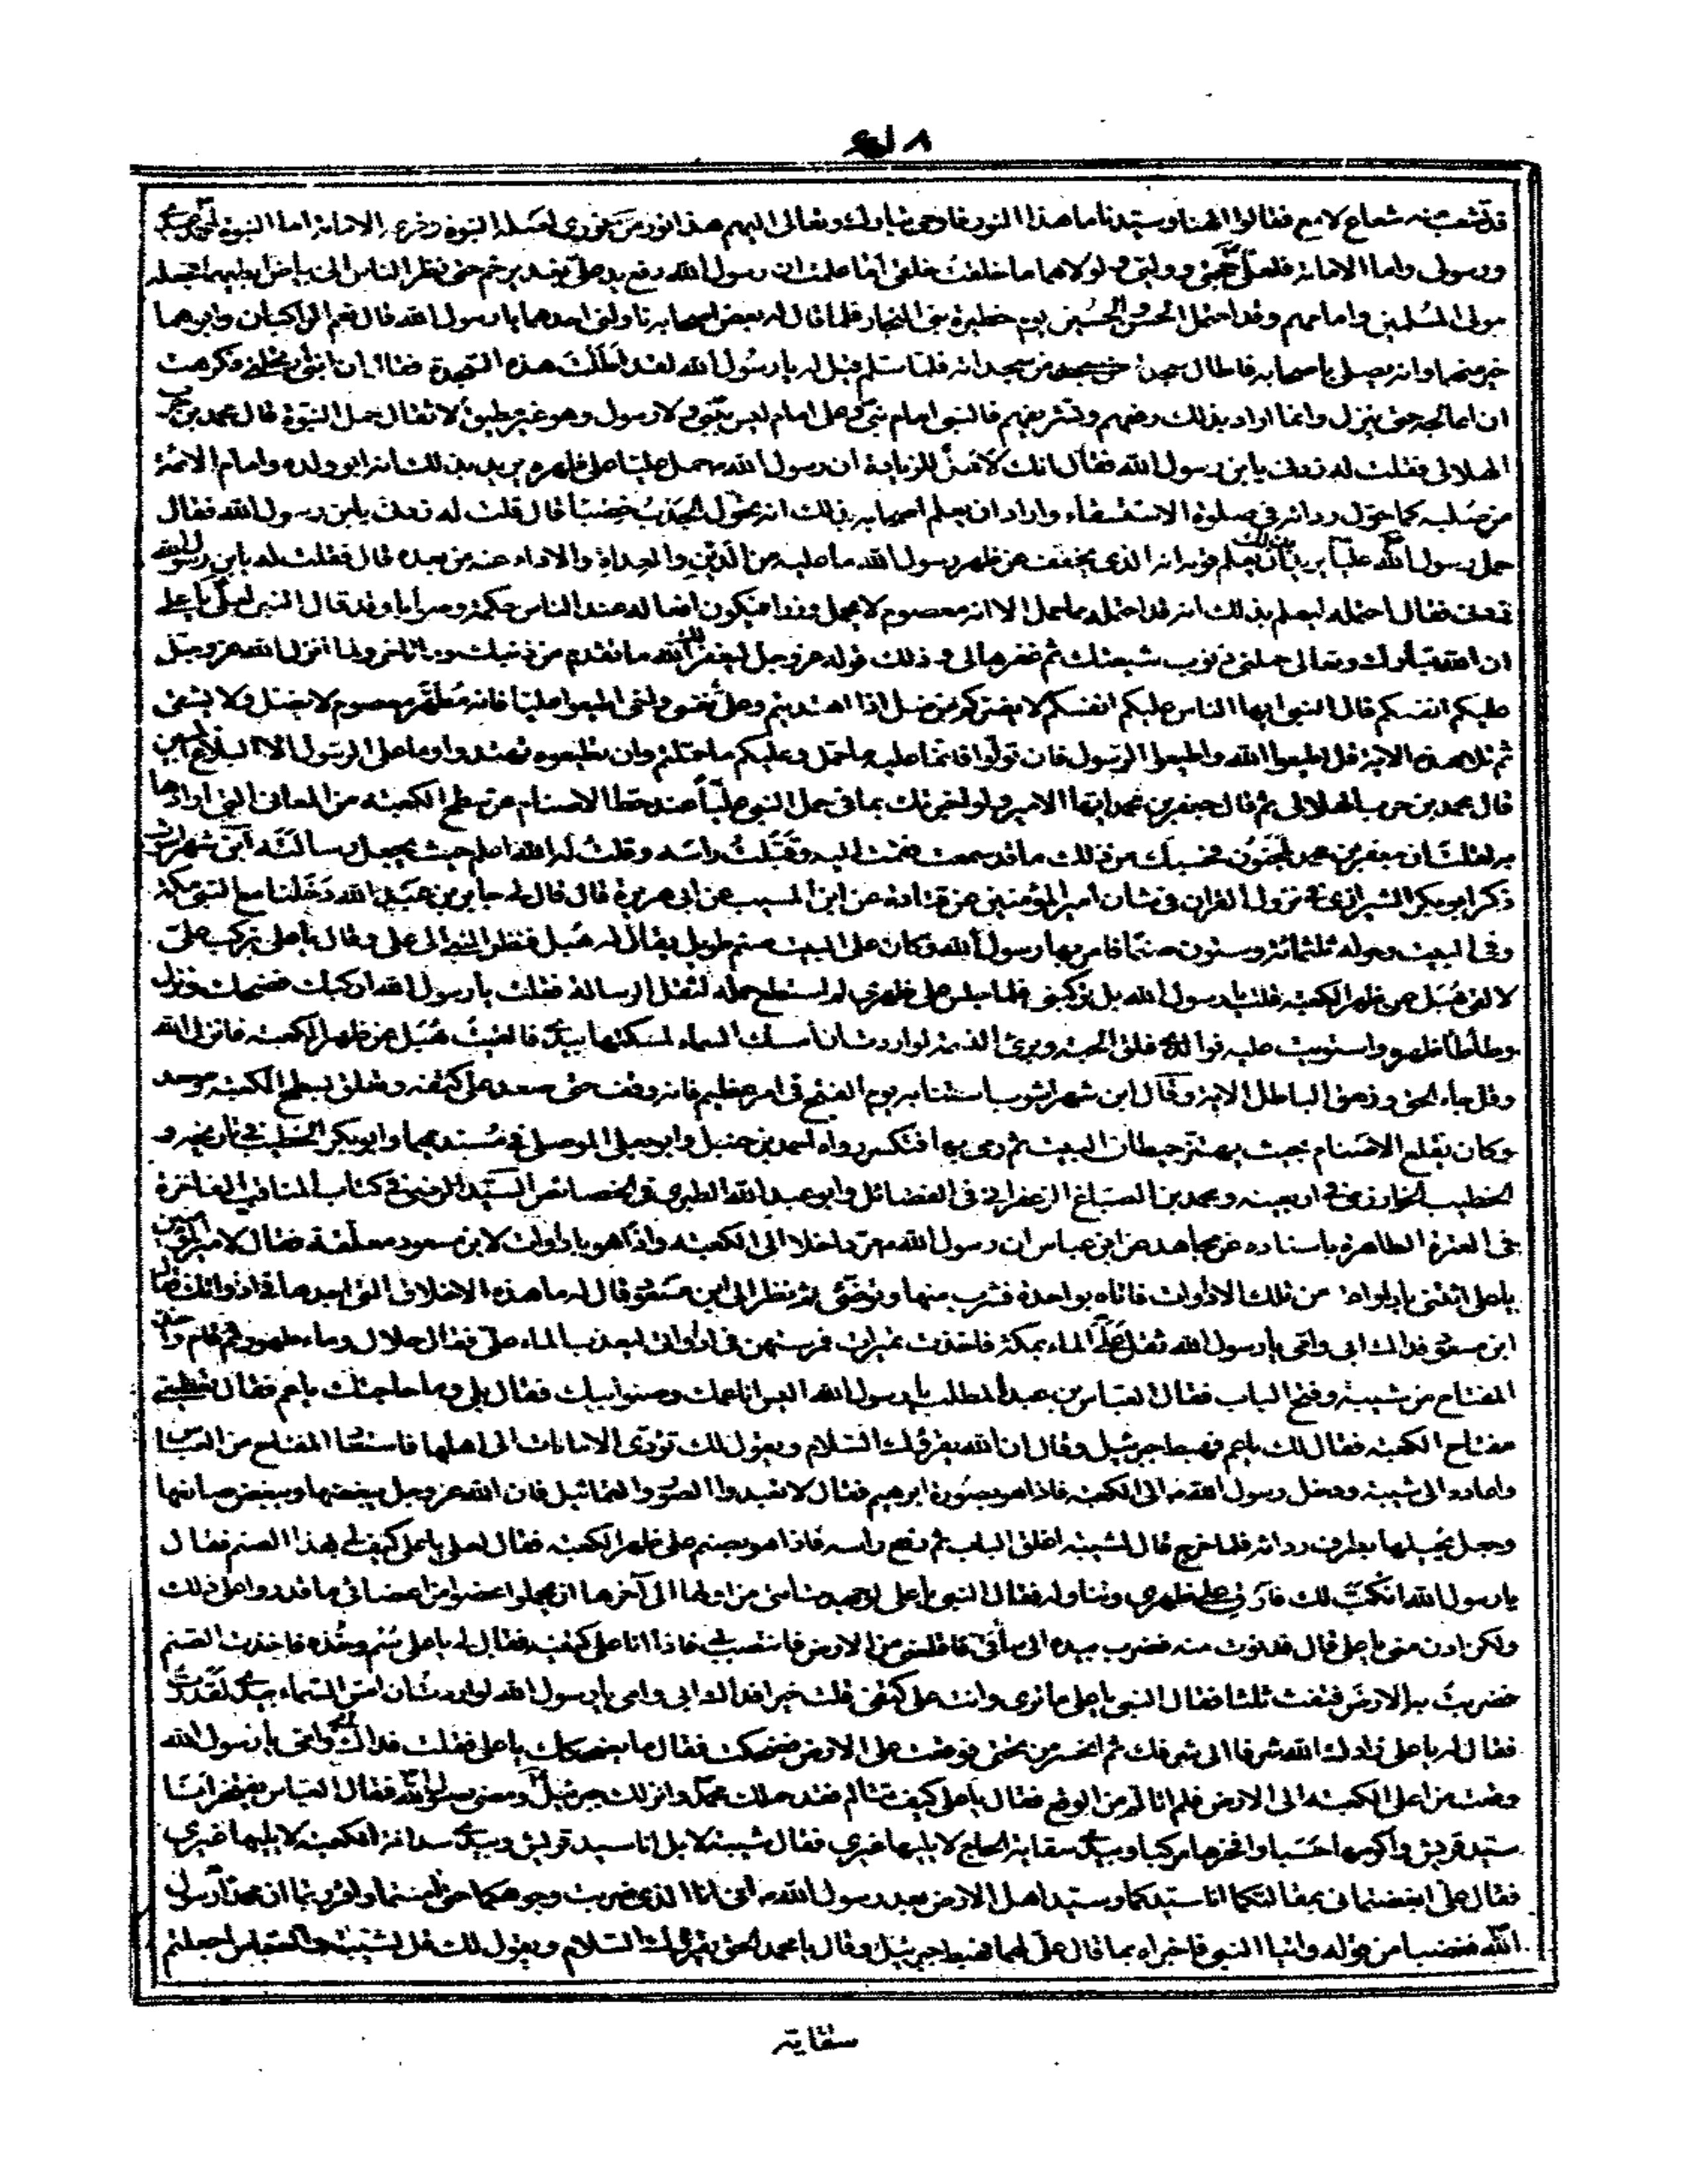 قد تشعّبت منه شعاع لامع فقالوا الهنا وسيّدنا ما هذا النور فاوحى تبارك وتعالى اليهم هذا نور من نوري اصله النبوة وفرعه الامامة اما النبوة
ورسولى واما الامامة فلعلى حجتي ووليى ولولاهما ما خلقت خلقى اما علمت ان رسول الله رفع يد علىّ بغدير خم حتى نظر الناس الى بياض ابطيهما فجعله
مولى المسلمين وامامهم وقد احتمل الحسن والحسين يوم حظيرة بنى النجار فلما قال له بعض اصحابه ناولنى احدهما يا رسول الله قال نعم الراكبان وابوهما
خير منهما وانه يصلى باصحابه فاطال سجدة من سجداته فلما سلم قيل له يا رسول الله لقد اطلت هذه السجدة فقال ان ابنى فكرهت
ان اعالجه حتى ينزل وانما اراد بذلك رفعهم وتشريفهم فالنبى امام نبى وعلى امام ليس بنبى ولا رسول وهو غير مطيق لاثقال حمل النبوة قال محمد بن حرب
الهلالى فقلت له زدنى يا ابن رسول الله فقال انك لاهل للزيادة ان رسول الله حمل عليا على ظهره يريد بذلك انه ابو ولده وامام الائمة
من صلبه كما حوّل ردائه فى صلوة الاستسقاء واراد ان يعلم اصحابه بذلك انه تحول الجدب خصبا قال قلت له زدنى يا ابن رسول الله فقال
حمل رسول الله عليا يريد بذلك ان يعلم قومه انه الذى يخفف عن ظهر رسول الله ما عليه من الدين والعداة والاداء عنه من بعده قال فقلت له يا ابن رسول الله
زدنى فقال احتمله ليعلم بذلك انه قد احتمله وما حمل الا انه معصوم لا يحمل وزرا فيكون افعاله عند الناس حكمة وصوابا وقد قال النبى لعلى يا على
ان الله تبارك وتعالى حملنى ذنوب شيعتك ثم غفرها لى وذلك قوله عز وجل ليغفر لك الله ما تقدم من ذنبك وما تاخر ولما انزل الله عز وجل
عليكم انفسكم قال النبى ايها الناس عليكم انفسكم لا يضركم من ضل اذا اهتديتم وعلى نفسى واخى اطيعوا عليا فانه مطهر معصوم لا يضل ولا يشقى
ثم تلا هذه الاية قل اطيعوا الله واطيعوا الرسول فان تولوا فانما عليه ما حمل وعليكم ما حملتم وان تطيعوه تهتدوا وما على الرسول الا البلاغ المبين
قال محمد بن حرب الهلالى ثم قال جعفر بن محمد ايها الامير ولو اخبرتك بما فى حمل النبى عليا عند حط الاصنام من سطح الكعبة من المعانى التى ارادها
به لقلت ان جعفر بن محمد لمجنون فحسبك من ذلك ما قد سمعت فقمت اليه وقبّلت راسه وقلت له الله اعلم حيث يجعل رسالته ابن شهراشوب
ذكر ابو بكر الشيرازى فى نزول القران فى شان امير المؤمنين عن قتادة عن ابن المسيب عن ابى هريرة قال قال له جابر بن عبد الله دخلنا مع النبى مكة
وفى البيت وحوله ثلثمائة وستون صنما فامر بها رسول الله وكان على البيت صنم طويل يقال له هبل فنظر النبى الى على وقال يا على تركب علىّ
لالقى هبل عن ظهر الكعبة قلت يا رسول الله بل تركبنى فلما جلس على ظهرى لم استطع حمله لثقل الرسالة فقلت يا رسول الله اركبك فضحك ونزل
وطأطأ ظهره واستويت عليه فوالذى فلق الحبة وبرئ النسمة لو اردت ان امسك السماء لمسكتها بيدى فالقيت هبل عن ظهر الكعبة فانزل الله
وقل جاء الحق وزهق الباطل الاية وقال ابن شهراشوب استنابه يوم الفتح فى امر عظيم فانه وقف حتى صعد على كتفه وتعلق بسطح الكعبة وصعد
وكان يقلع الاصنام بحيث يهتز حيطان البيت ثم رمى بها فتنكسر رواه احمد بن حنبل وابو يعلى الموصلى فى مسنديهما وابو بكر الخطيب فى تاريخه و
الخطيب الخوارزمى فى اربعينه ومحمد بن الصباغ الزعفرانى فى الفضائل وابو عبد الله الطبرى فى الخصائص السيد الرضى فى كتاب المناقب الفاخرة
فى العترة الطاهرة باسناده عن مجاهد عن ابن عباس ان رسول الله مرّ داخلا الى الكعبة واذا هو باداوات لابن مسعود معلقة فقال لامير المؤمنين
يا على ائتنى باداوة من تلك الاداوات فاتاه بواحدة فشرب منها وتوضى ثم نظر الى ابن مسعود قال له ما هذه الاخلاق التى اجدها فى اداوتك فقال
ابن مسعود فداك ابى وامى يا رسول الله ثقل علىّ الماء بمكة فاخذت تميرات فمرستهن فى اداواتى ليعذب الماء علىّ فقال حلال وماء طهور ثم قام واخذ
المفتاح من شيبة وفتح الباب فقال العباس بن عبد المطلب يا رسول الله اليس انا عمك وصنو ابيك فقال بلى وما حاجتك يا عم فقال تعطينى
مفتاح الكعبة فقال لك يا عم فهبط جبرئيل وقال ان الله يقرئك السلام ويقول لك تؤدى الامانات الى اهلها فاستعاد المفتاح من العباس
واعاده الى شيبة ودخل رسول الله الى الكعبة فاذا هو بصورة ابرهيم فقال لا تعبدوا الصور والتماثيل فان الله عز وجل يبغضها ويبغض صانعها
وجعل يحكها بطرف ردائه فلما خرج قال لشيبة اغلق الباب ثم رفع راسه فاذا هو بصنم على ظهر الكعبة فقال لعلى يا على كيف لى بهذا الصنم فقال
يا رسول الله انكبّ لك فارق على ظهرى وتناوله فقال النبى يا على لو جهد امتى من اولها الى آخرها ان يحملوا عضوا من اعضائى ما قدروا على ذلك
ولكن ادن منى يا على قال فدنوت منه فضرب بيده الى ساقى فاقلعنى من الارض فانتصب بى فاذا انا على كتفيه فقال له يا على سمّ وخذه فاخذت الصنم
فضربت به الارض فتفتت ثلثا فقال النبى يا على ما ترى وانت على كتفى قلت خيرا فداك ابى وامى يا رسول الله لو اردت ان امس السماء بيدى لقدرت
فقال له يا على زادك الله شرفا الى شرفك ثم انحسر من تحتى فوقعت على الارض فضحكت فقال ما يضحكك يا على فقلت فداك ابى وامى يا رسول الله
وقعت من اعلى الكعبة الى الارض فلم اتالم من الوقع فقال يا على كيف تتألم وقد حملك محمد وانزلك جبرئيل ومضى رسول الله فقال العباس يفتخر انا
سيد قريش واكرمها حسبا وافخرها مركبا وبيدى سقاية الحاج لا يليها غيرى فقال شيبة لا بل انا سيد قريش وبيدى سدانة الكعبة لا يليها غيرى
فقال على ابغضتمانى بمقالتكما انا سيدكما وسيد اهل الارض بعد رسول الله انا الذى ضربت وجوهكما حتى امنتما واقررتما ان محمدا رسول
الله فغضبا من قوله واتيا النبى فاخبراه بما قال على لهما فهبط جبرئيل وقال يا محمد الحق يقرئك السلام ويقول لك قل لشيبة والعباس اجعلتم
سقاية